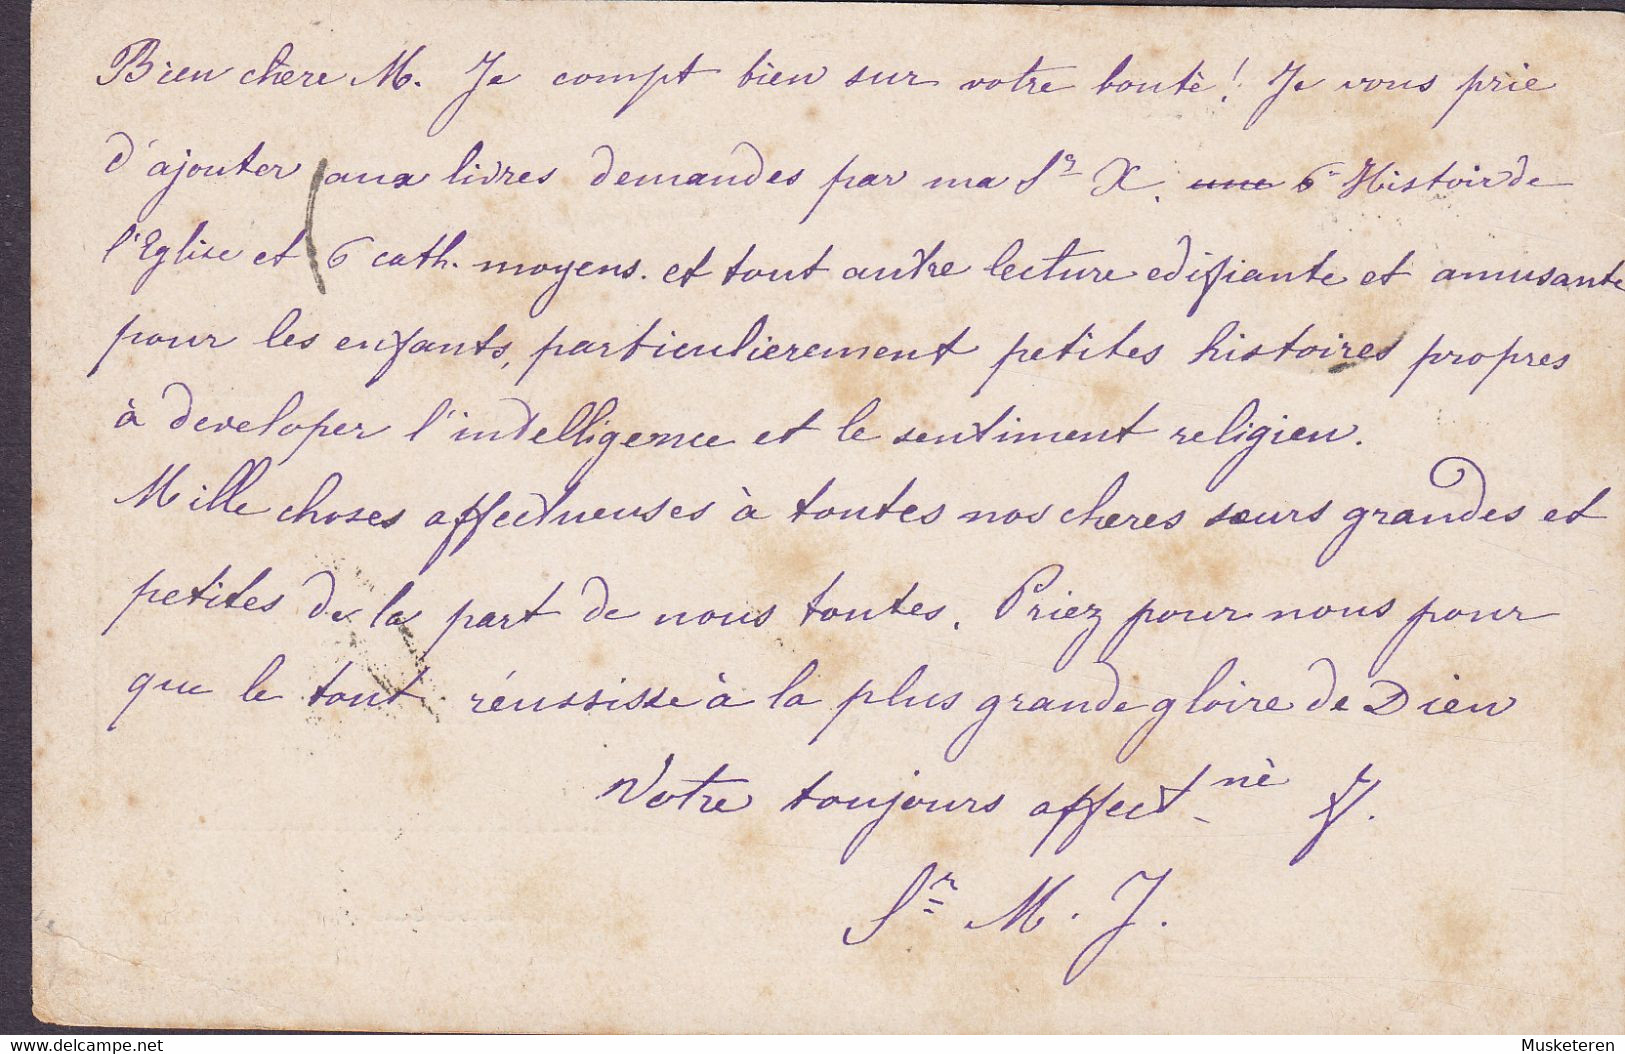 Bien chere M. Je compt bien sur votre bonté! Je vous prie
d'ajouter aux livres demandes par ma Sr X. une 6 Histoir de
l'Eglise et 6 cath. moyens. et tout autre lecture edifiante et amusante
pour les enfants, particulierement petites histoires propres
à developer l'intelligence et le sentiment religien.
Mille choses affectueuses à toutes nos cheres sœurs grandes et
petites de la part de nous toutes. Priez pour nous pour
que le tout réussisse à la plus grande gloire de Dieu
Votre toujours affect né J.
Sr M. J.
delcampe.net
Musketeren